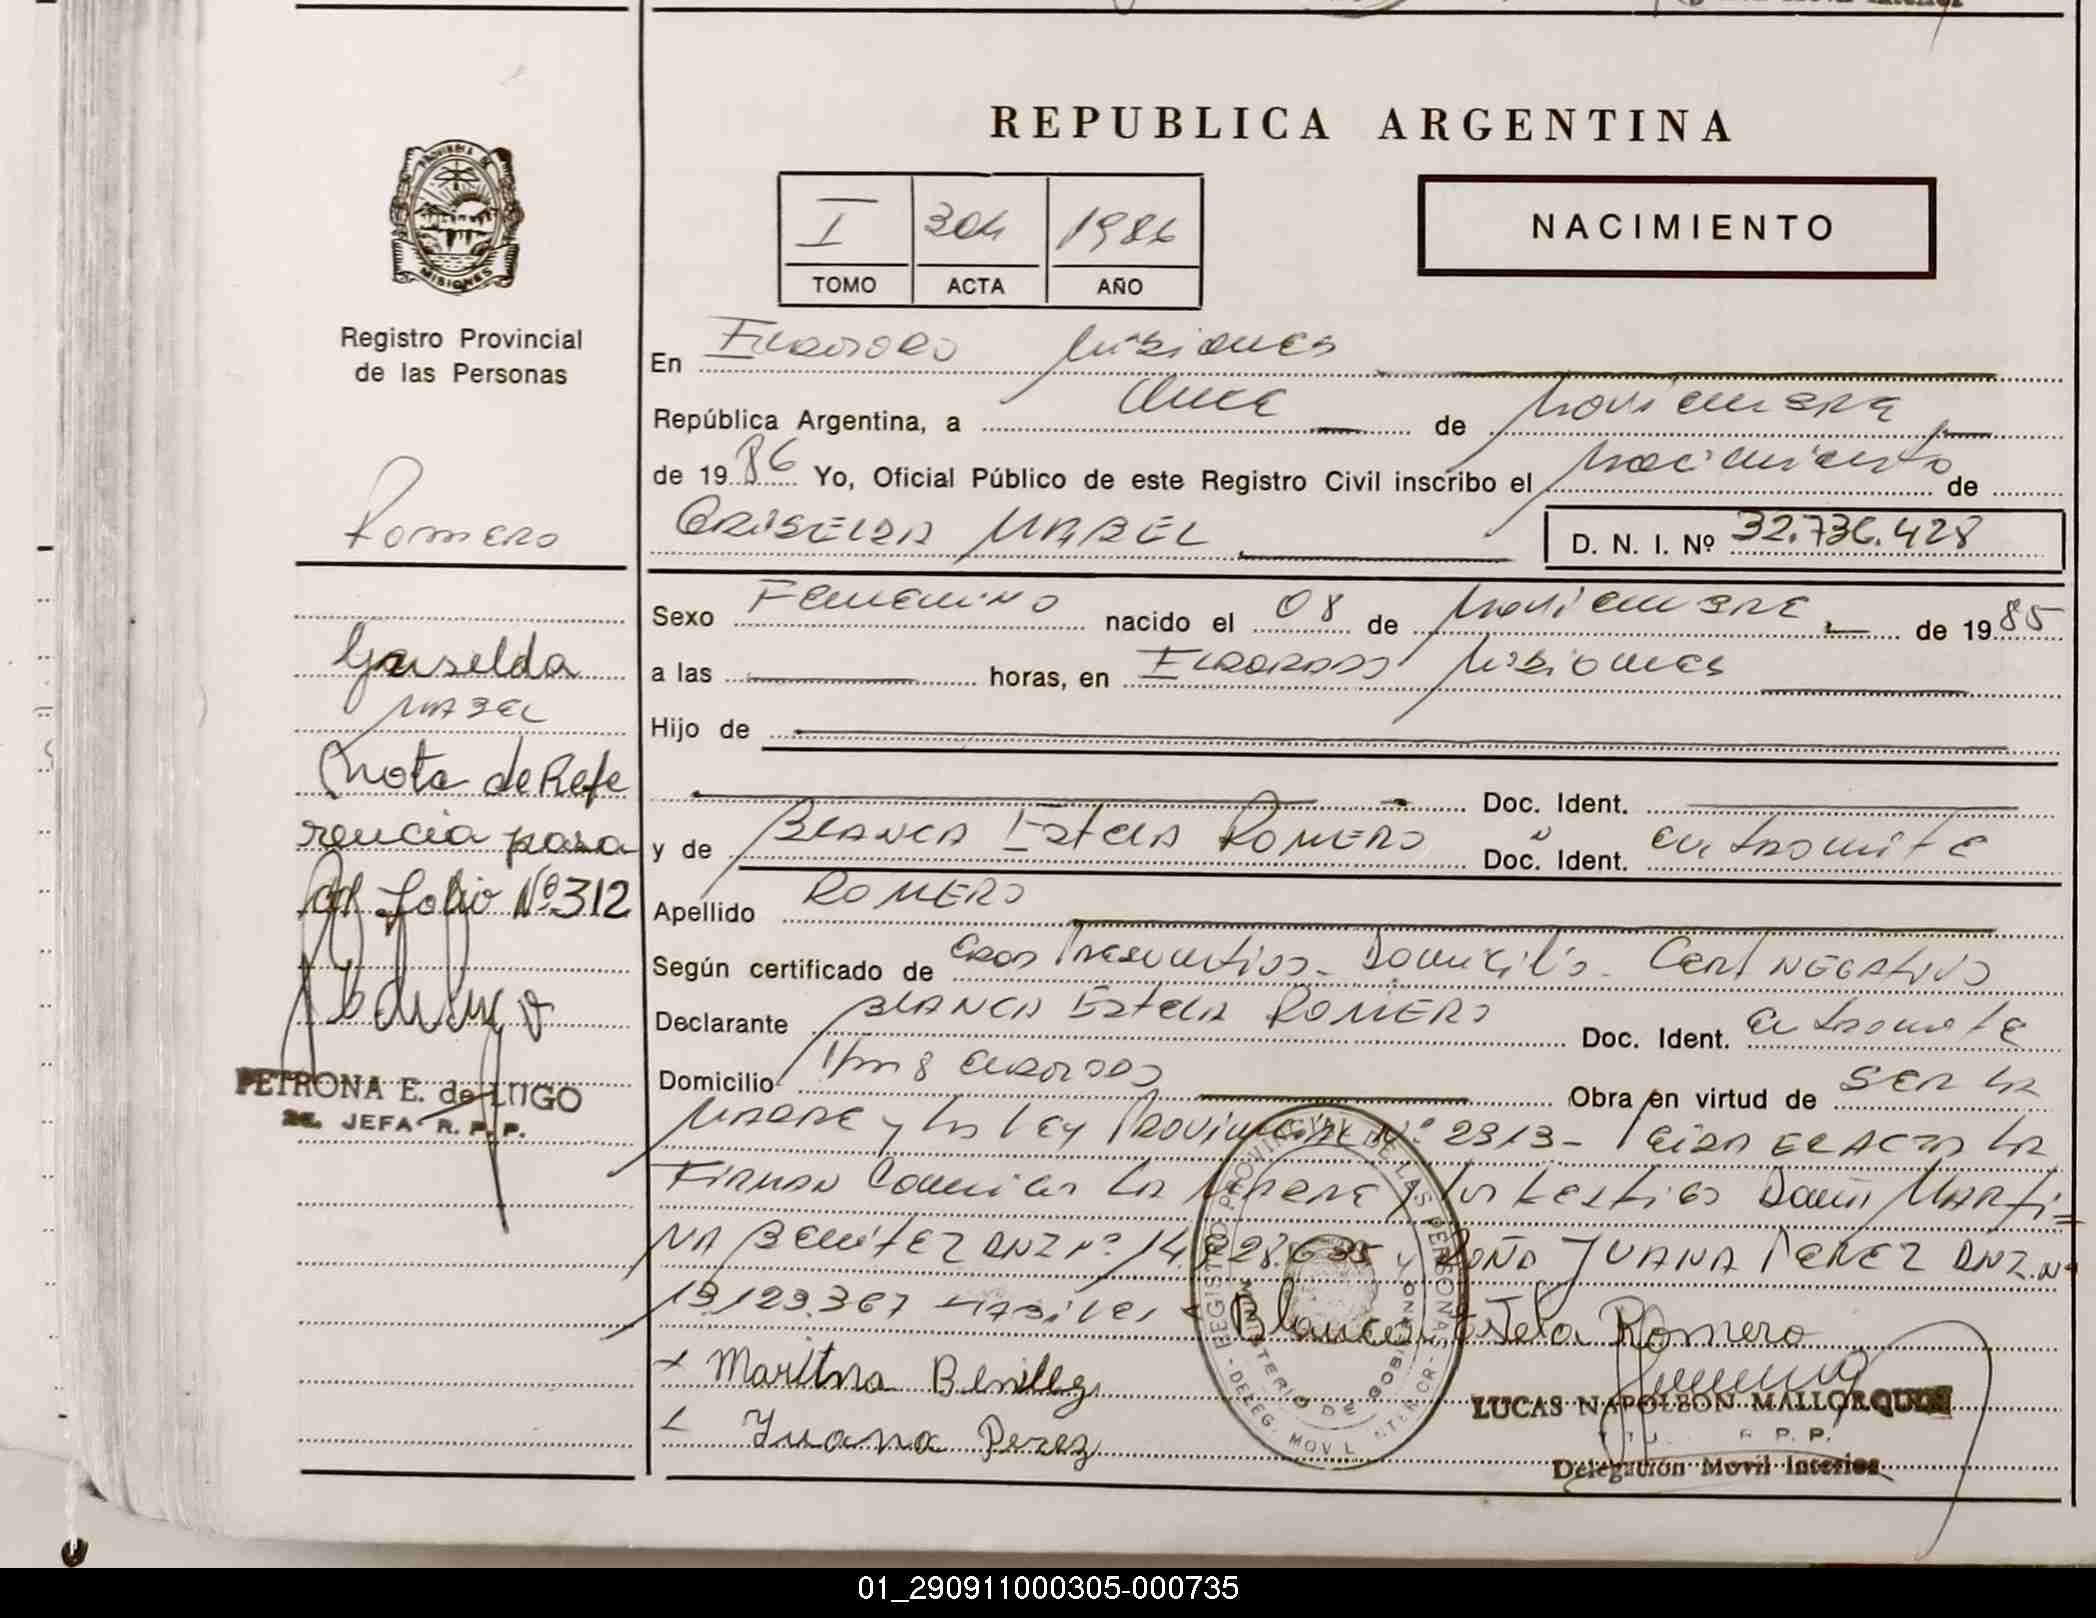 REPUBLICA ARGENTINA
NACIMIENTO
I 304 1986
TOMO ACTA AÑO
PROVINCIA DE
MISIONES
Registro Provincial
de las Personas
Romero
Griselda
MABEL
Nota de Refe
rencia pasa
al folio Nº 312
PETRONA E. de LUGO
JEFA R. P. P.
En ELDORADO Misiones
República Argentina, a Once de Noviembre
de 1986 Yo, Oficial Público de este Registro Civil inscribo el Nacimiento de
GRISELDA MABEL
D. N. I. Nº 32.736.428
Sexo Femenino nacido el 08 de Noviembre de 1985
a las horas, en ELDORADO Misiones
Hijo de
Doc. Ident.
y de BLANCA Estela ROMERO Doc. Ident. en tramite
Apellido ROMERO
Según certificado de Domicilio - Cert NEGATIVO
Declarante BLANCA Estela ROMERO Doc. Ident. en tramite
Domicilio Km 8 ELDORADO Obra en virtud de SER LA
MADRE y la Ley Provincial Nº 2913 - Leida EL ACTA LA
FIRMAN Conmigo LA MADRE y los testigos Doña MARTI=
NA BENITEZ DNI Nº 14. 28.635 y DOÑA JUANA PEREZ DNI. Nº
13.129.367 HABILES
Blanca Estela Romero
x Maritna Benitez
Juana Perez
REGISTRO PROVINCIAL DE LAS PERSONAS
MINISTERIO DE GOBIERNO
DELEG. MOVIL INTERIOR
LUCAS NAPOLEON MALLORQUIN
R. P. P.
Delegación Movil Interior
01_290911000305-000735